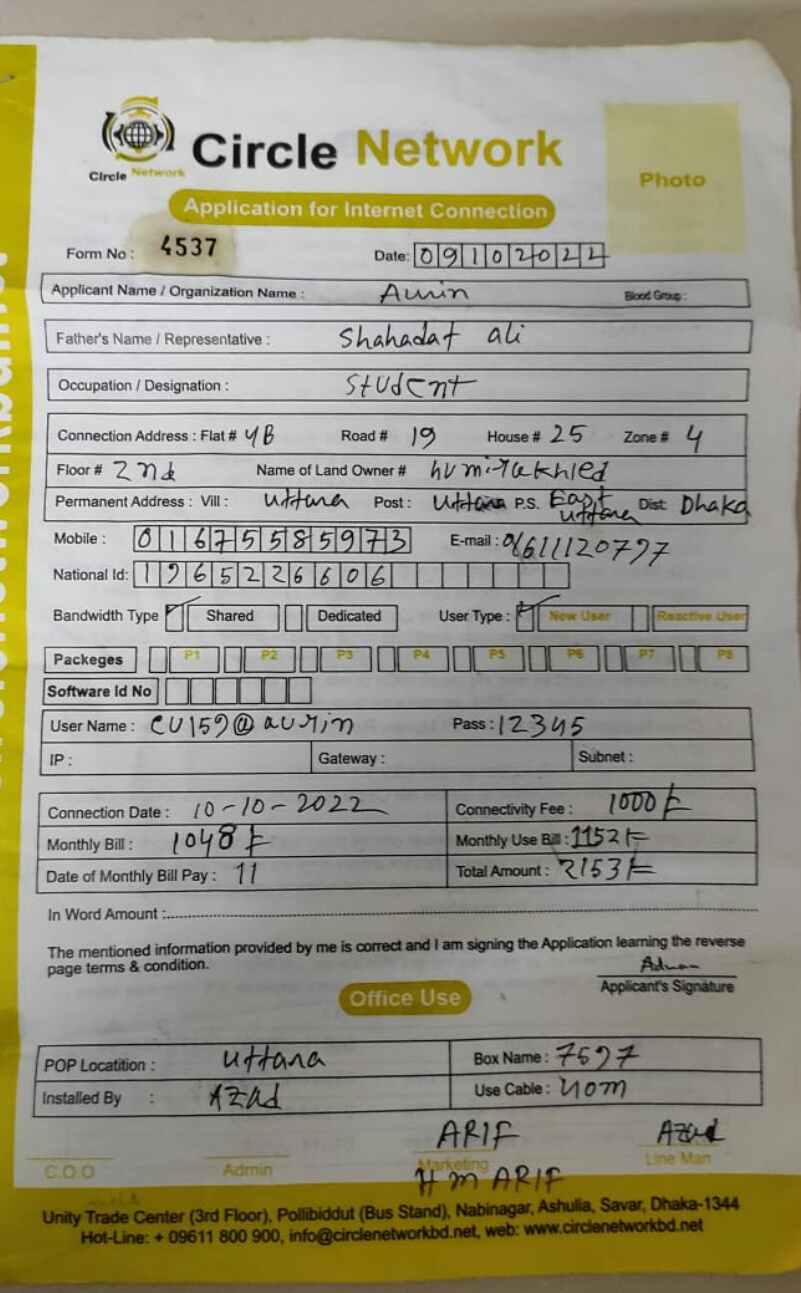 Circle Network
Circle Network
Photo
Application for Internet Connection
Form No : 4537 Date: 09102022
Applicant Name / Organization Name : Amin Blood Group :
Father's Name / Representative : Shahadat ali
Occupation / Designation : Student
Connection Address : Flat # 4B Road # 19 House # 25 Zone # 4
Floor # 2nd Name of Land Owner #
Permanent Address : Vill : Uttara Post : Uttara P.S. East Uttara Dist: Dhaka
Mobile : 01675585973 E-mail : 01611120797
National Id: 1965226606
Bandwidth Type Shared Dedicated User Type : New User Reactive User
Packeges P1 P2 P3 P4 P5 P6 P7 P8
Software Id No
User Name : Pass : 12345
IP : Gateway : Subnet :
Connection Date : 10-10-2022 Connectivity Fee : 1000/=
Monthly Bill : 1048/= Monthly Use Bill : 1152/=
Date of Monthly Bill Pay : 11 Total Amount : 2153/=
In Word Amount :
The mentioned information provided by me is correct and I am signing the Application learning the reverse
page terms & condition.
Adnan
Applicant's Signature
Office Use
POP Locatition : Uttara Box Name : 7597
Installed By : AZad Use Cable : 40m
ARIF Azad
C.O.O Admin Marketing Line Man
H m ARIF
Unity Trade Center (3rd Floor), Pollibiddut (Bus Stand), Nabinagar, Ashulia, Savar, Dhaka-1344
Hot-Line: + 09611 800 900, info@circlenetworkbd.net, web: www.circlenetworkbd.net